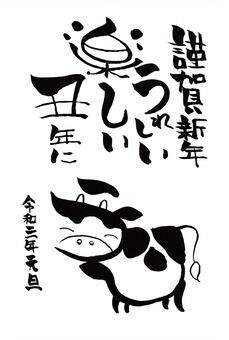 謹賀新年
うれしい
楽しい
丑年に
令和三年元旦